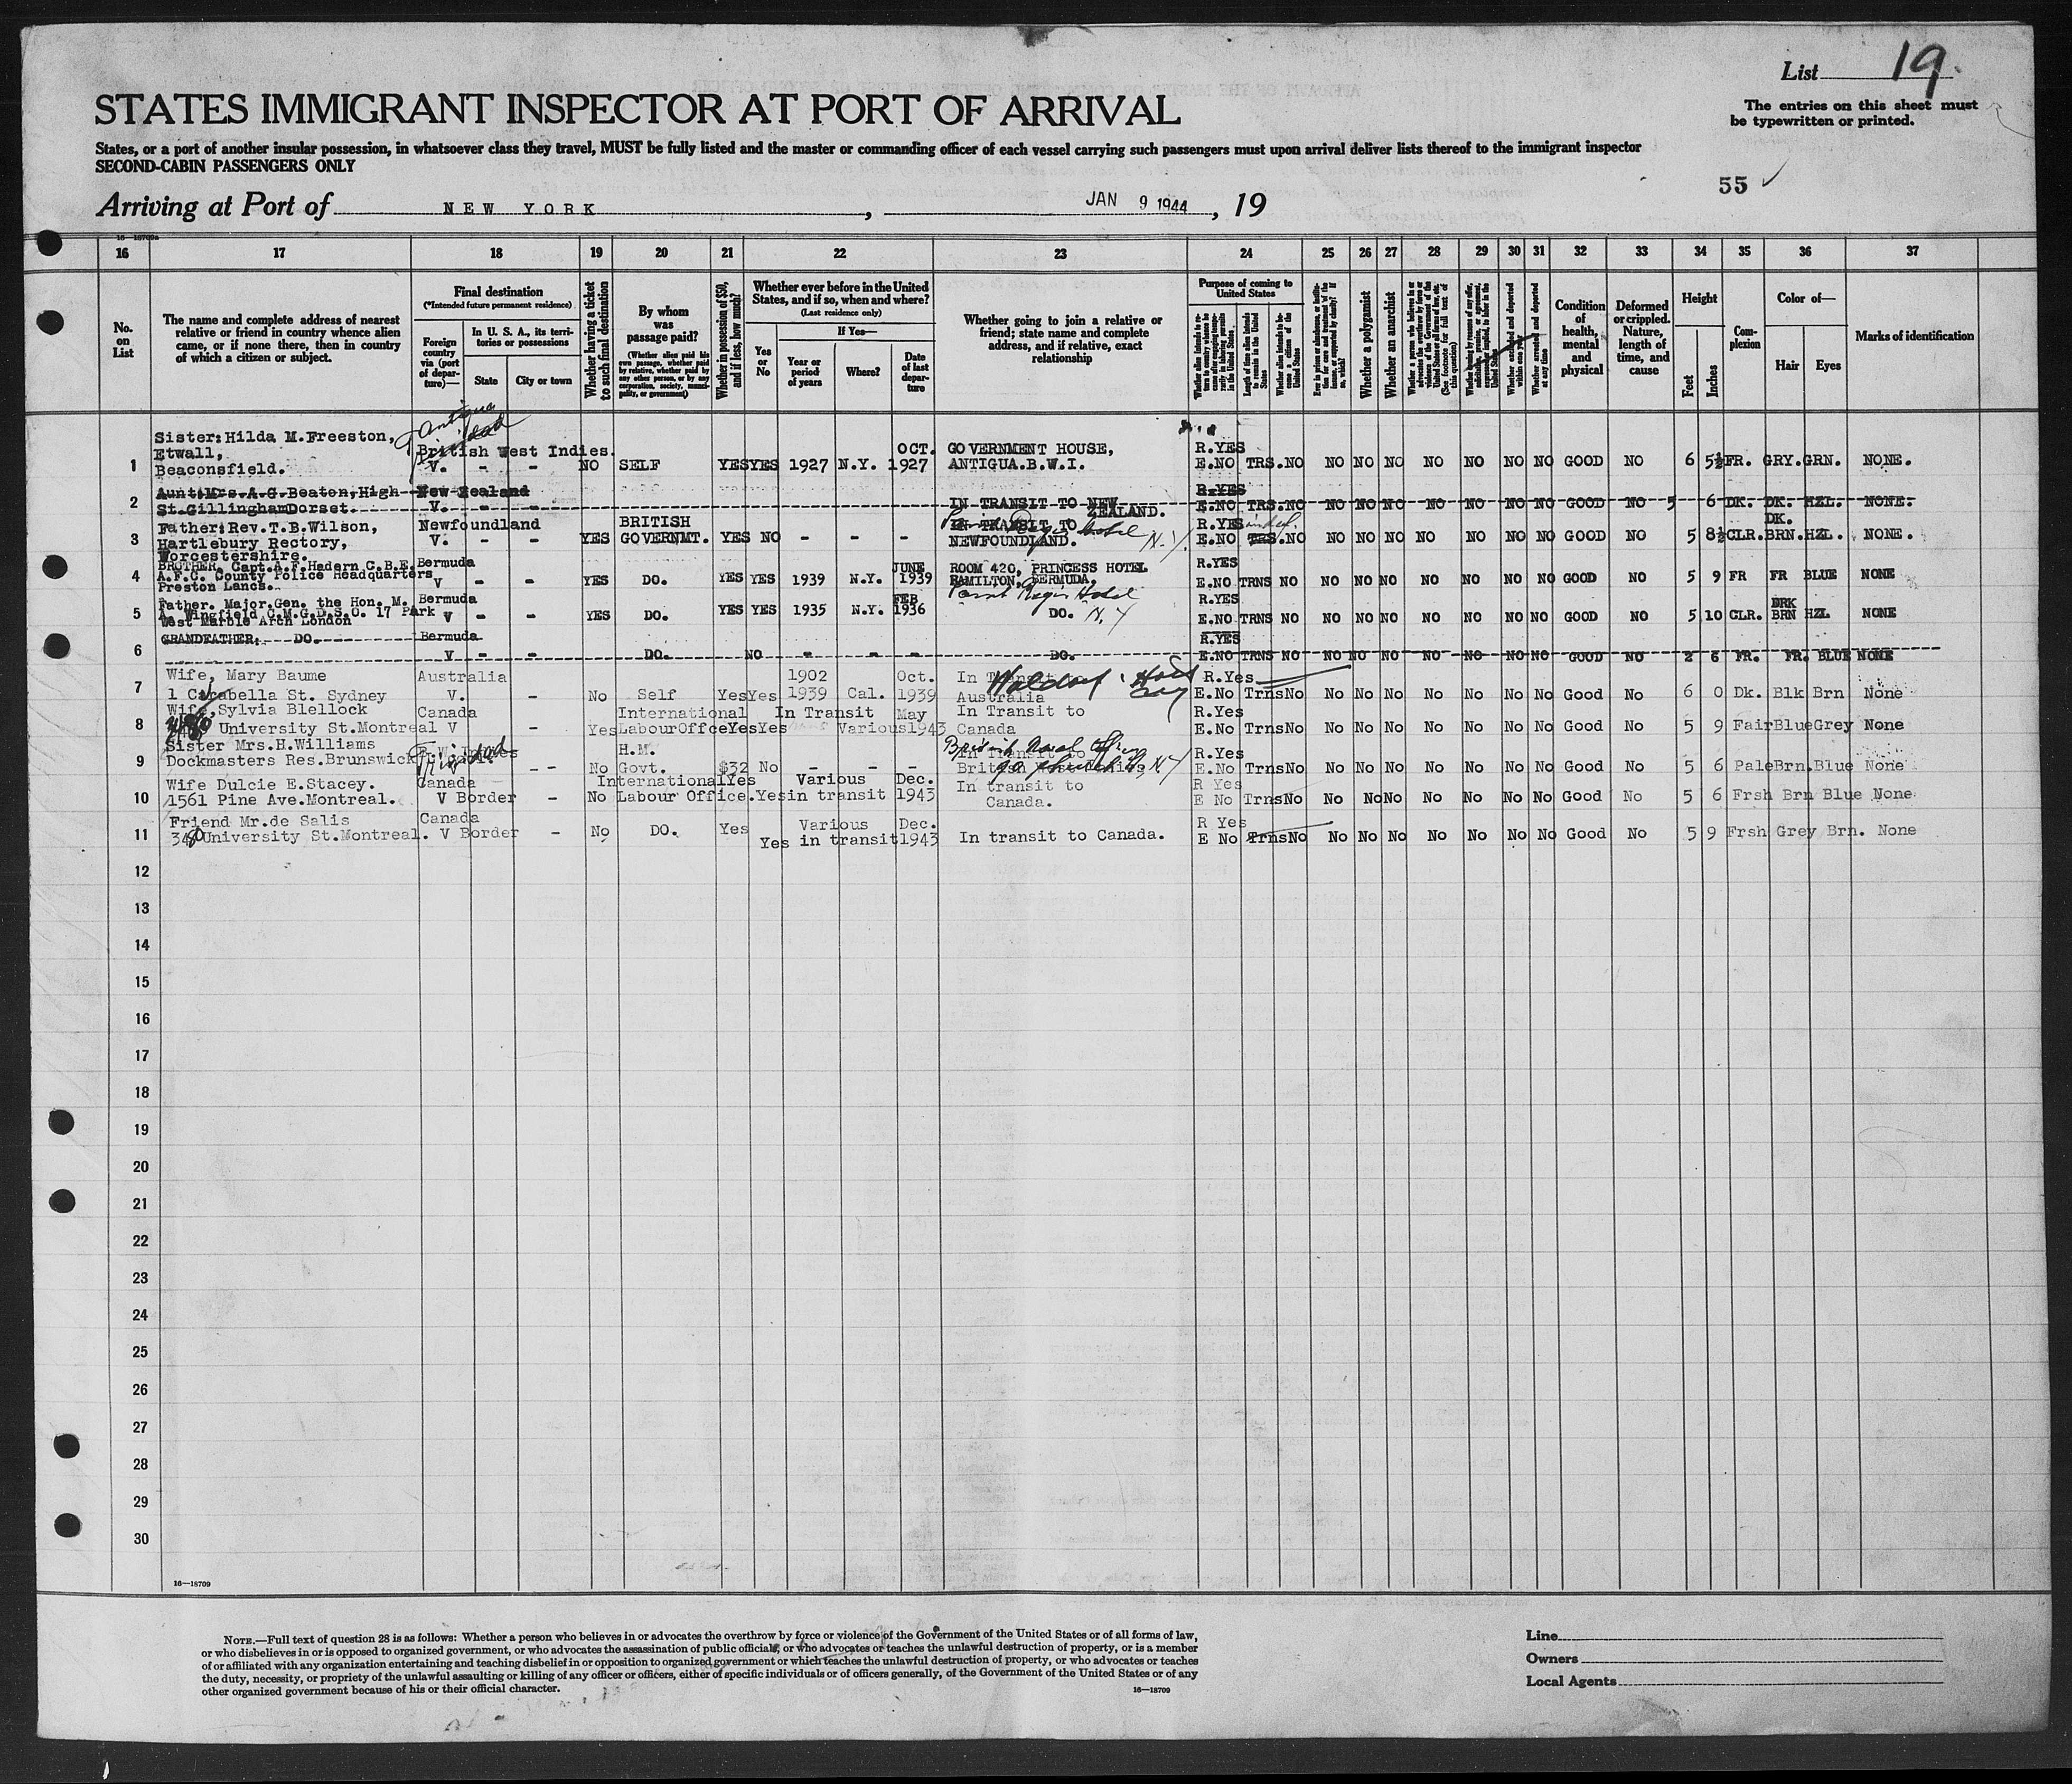 List 19.
The entries on this sheet must
be typewritten or printed.
STATES IMMIGRANT INSPECTOR AT PORT OF ARRIVAL
States, or a port of another insular possession, in whatsoever class they travel, MUST be fully listed and the master or commanding officer of each vessel carrying such passengers must upon arrival deliver lists thereof to the immigrant inspector
SECOND-CABIN PASSENGERS ONLY
55
Arriving at Port of NEW YORK, JAN 9 1944, 19
16—18709a
16 17 18 19 20 21 22 23 24 25 26 27 28 29 30 31 32 33 34 35 36 37
No. on List
The name and complete address of nearest relative or friend in country whence alien came, or if none there, then in country of which a citizen or subject.
Final destination
(*Intended future permanent residence)
Foreign country via (port of departure)—
In U. S. A., its territories or possessions
State
City or town
Whether having a ticket to such final destination
By whom was passage paid?
(Whether alien paid his own passage, whether paid by relative, whether paid by any other person, or by any corporation, society, municipality, or government)
Whether in possession of $50, and if less, how much?
Whether ever before in the United States, and if so, when and where?
(Last residence only)
If Yes—
Yes or No
Year or period of years
Where?
Date of last departure
Whether going to join a relative or friend; state name and complete address, and if relative, exact relationship
Purpose of coming to United States
Length of time alien intends to remain in the United States
Whether alien intends to become a citizen of the United States
Whether a polygamist
Whether an anarchist
Condition of health, mental and physical
Deformed or crippled. Nature, length of time, and cause
Height
Feet
Inches
Complexion
Color of—
Hair
Eyes
Marks of identification
Antigua
Sister: Hilda M. Freeston,
Etwall, British West Indies. OCT. GOVERNMENT HOUSE, R.YES
1 Beaconsfield. V. - - NO SELF YES YES 1927 N.Y. 1927 ANTIGUA.B.W.I. E.NO TRS. NO NO NO NO NO NO NO NO GOOD NO 6 5½ FR. GRY. GRN. NONE.
Aunt: Mrs. A.G. Beaton, High New Zealand R.YES
2 St. Gillingham Dorset. V. - IN TRANSIT TO NEW ZEALAND. E.NO TRS. NO NO NO NO NO NO NO NO GOOD NO 5 6 DK. DK. HZL. NONE.
Father: Rev. T.B. Wilson, Newfoundland BRITISH IN TRANSIT TO R.YES DK.
3 Hartlebury Rectory, V. - - YES GOVERNMT. YES NO - - - NEWFOUNDLAND. Hotel N.Y. E.NO TRS. NO NO NO NO NO NO NO NO GOOD NO 5 8½ CLR. BRN. HZL. NONE.
Worcestershire.
BROTHER, Capt. A.F. Hadern C.B.E. Bermuda JUNE ROOM 420, PRINCESS HOTEL R.YES
4 A.F.C. County Police Headquarters V - - YES DO. YES YES 1939 N.Y. 1939 HAMILTON, BERMUDA, E.NO TRNS NO NO NO NO NO NO NO NO GOOD NO 5 9 FR FR BLUE NONE
Preston Lancs.
Father. Major. Gen. the Hon. M. Bermuda FEB Hotel R.YES DRK
5 A. Wingfield C.M.G.D.S.O. 17 Park V - - YES DO. YES YES 1935 N.Y. 1936 DO. N.Y E.NO TRNS NO NO NO NO NO NO NO NO GOOD NO 5 10 CLR. BRN HZL NONE
West Marble Arch London
GRANDFATHER. DO. Bermuda R.YES
6 V - - DO. NO - - - DO. E.NO TRNS NO NO NO NO NO NO NO NO GOOD NO 2 6 FR. FR. BLUE NONE
Wife, Mary Baume Australia 1902 Oct. In Transit to Waldorf R.Yes
7 1 Carabella St. Sydney V. - No Self Yes Yes 1939 Cal. 1939 Australia E.No Trns No No No No No No No No Good No 6 0 Dk. Blk Brn None
Wife, Sylvia Blellock Canada International In Transit May In Transit to R.Yes
8 University St. Montreal V Yes Labour Offce Yes Yes Various 1943 Canada E.No Trns No No No No No No No No Good No 5 9 Fair Blue Grey None
Sister Mrs. H. Williams Trinidad H.M. British Naval R.Yes
9 Dockmasters Res. Brunswick - - No Govt. $32 No - - - N.Y E.No Trns No No No No No No No No Good No 5 6 Pale Brn. Blue None
Wife Dulcie E. Stacey. Canada International Yes Various Dec. In transit to R Yes
10 1561 Pine Ave. Montreal. V Border - No Labour Office. Yes in transit 1943 Canada. E No Trns No No No No No No No No Good No 5 6 Frsh Brn Blue None
Friend Mr. de Salis Canada Various Dec. R Yes
11 3480 University St. Montreal. V Border - No DO. Yes Yes in transit 1943 In transit to Canada. E No Trns No No No No No No No No Good No 5 9 Frsh Grey Brn. None
12
13
14
15
16
17
18
19
20
21
22
23
24
25
26
27
28
29
30
16—18709
NOTE.—Full text of question 28 is as follows: Whether a person who believes in or advocates the overthrow by force or violence of the Government of the United States or of all forms of law,
or who disbelieves in or is opposed to organized government, or who advocates the assassination of public officials, or who advocates or teaches the unlawful destruction of property, or is a member
of or affiliated with any organization entertaining and teaching disbelief in or opposition to organized government or which teaches the unlawful destruction of property, or who advocates or teaches
the duty, necessity, or propriety of the unlawful assaulting or killing of any officer or officers, either of specific individuals or of officers generally, of the Government of the United States or of any
other organized government because of his or their official character.
16—18709
Line
Owners
Local Agents